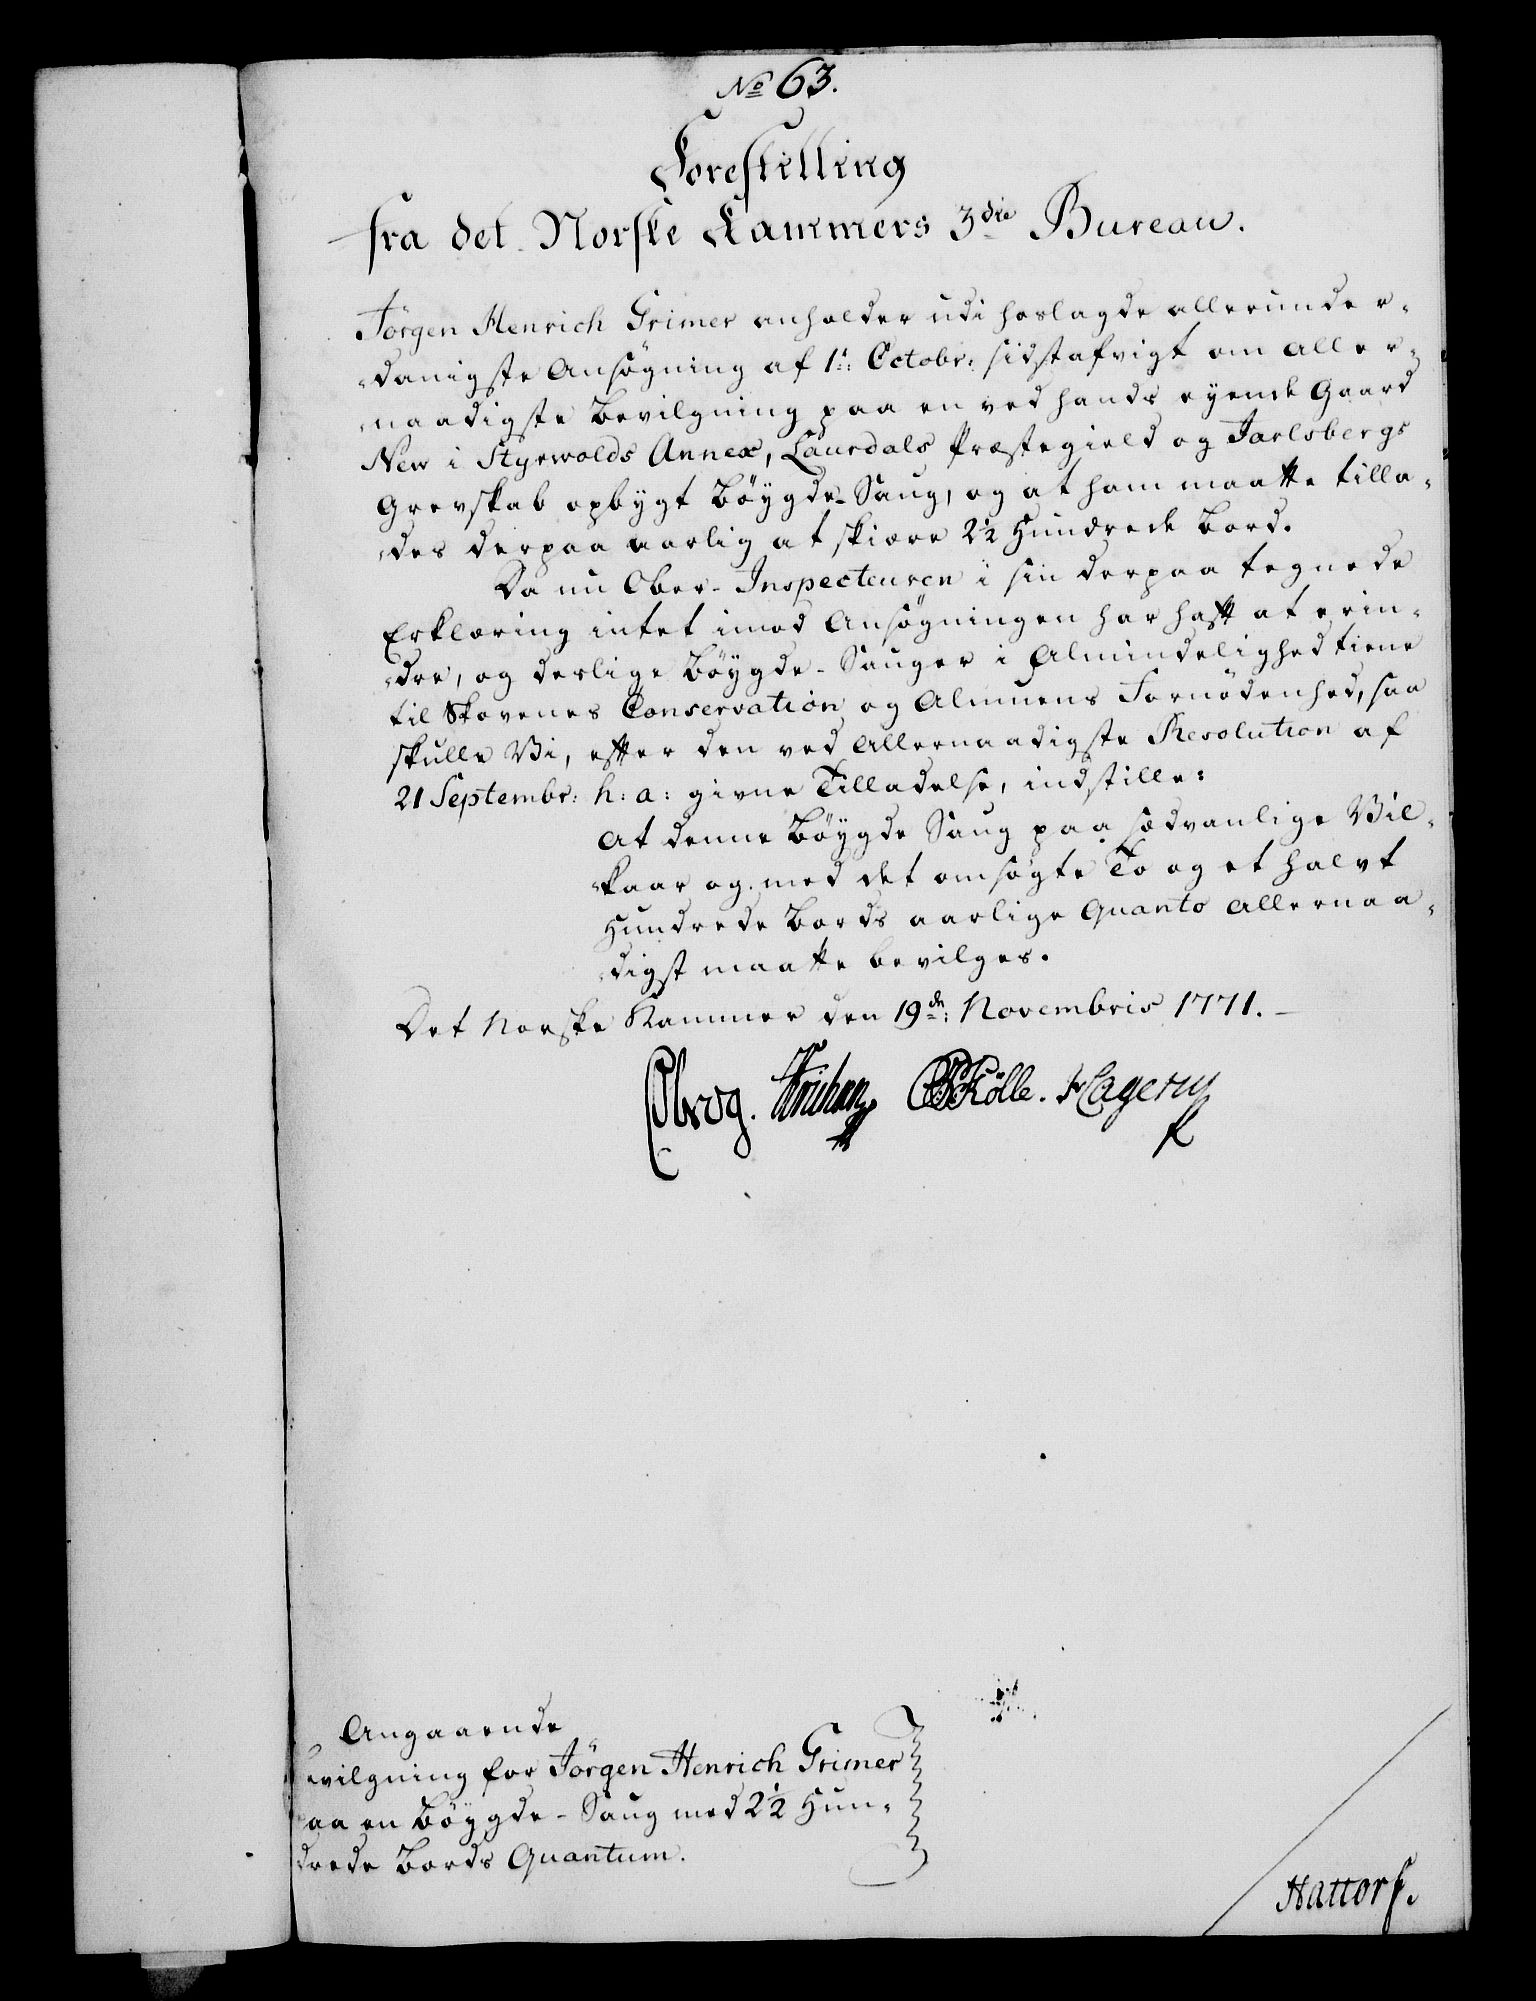 No 63.
Forestilling
fra det Norske Kammers 3die Bureau.
Jörgen Henrich Grimer anholder udi hoslagde allerunder-
danigste Ansögning af 1te Octobr: sidstafvigt om Aller-
naadigste Bevilgning paa en ved hands eyende Gaard
New i Styrwolds Annex, Laurdals Præstegield og Jarlsbergs
Grevskab opbygt Böygde-Saug, og at ham maatte tilla-
des derpaa aarlig at skiære 2 1/2 Hundrede Bord.
Da nu Ober-Inspecteuren i sin derpaa tegnede
Erklæring intet imod Ansögningen har hafft at erin-
dre, og deslige Böygde-Sauger i Almindelighed tiene
til Skovenes Conservation og Almuens Fornödenhed, saa
skulle Vi, efter den ved Allernaadigste Resolution af
21 Septembr: h: a: givne Tilladelse, indstille:
At denne Böygde Saug paa sædvanlige Vil-
kaar og med det omsögte To og et halvt
Hundrede Bords aarlige Quanto Allernaa-
digst maatte bevilges.
Det Norske Kammer den 19de: Novembris 1771.
Kölle.
Angaaende
evilgning for Jörgen Henrich Grimer
aa en Böygde-Saug med 2 1/2 Hun-
drede Bords Quantum.
Hattorf.